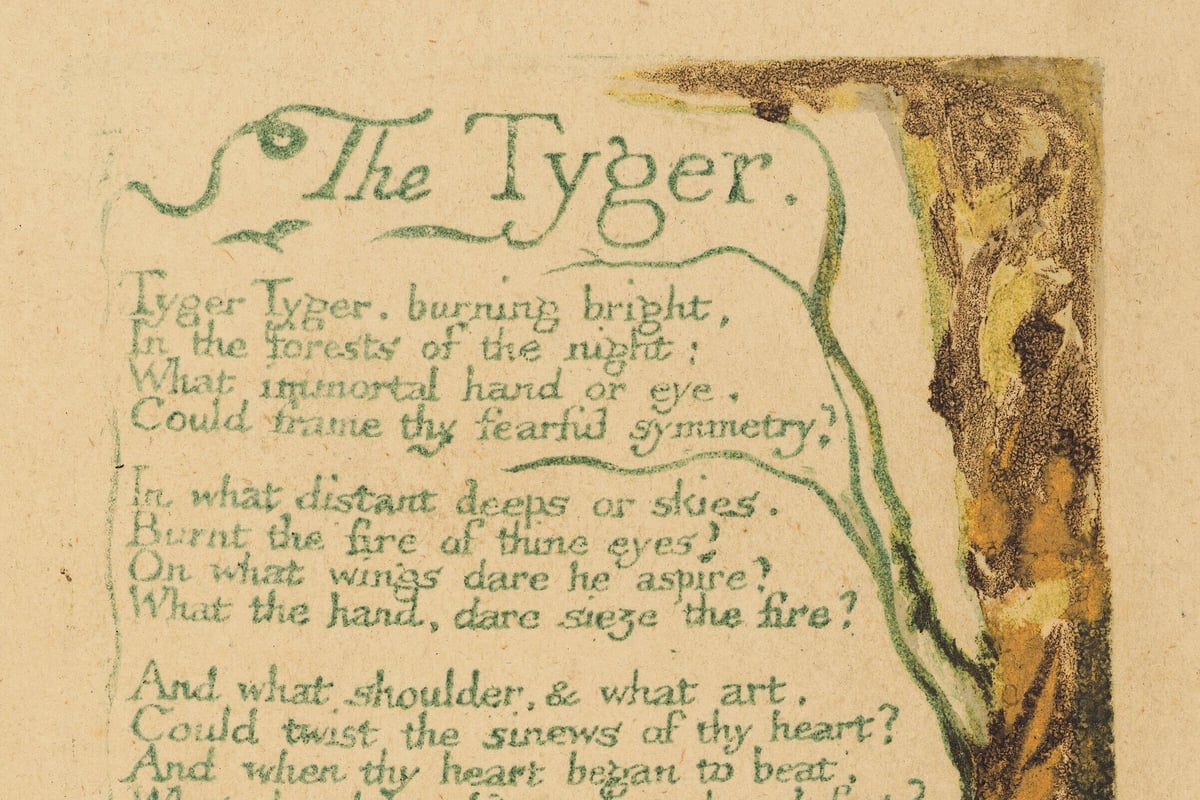 The Tyger.
Tyger Tyger. burning bright,
In the forests of the night;
What immortal hand or eye.
Could frame thy fearful symmetry?
In what distant deeps or skies.
Burnt the fire of thine eyes?
On what wings dare he aspire?
What the hand, dare sieze the fire?
And what shoulder, & what art.
Could twist the sinews of thy heart?
And when thy heart began to beat,